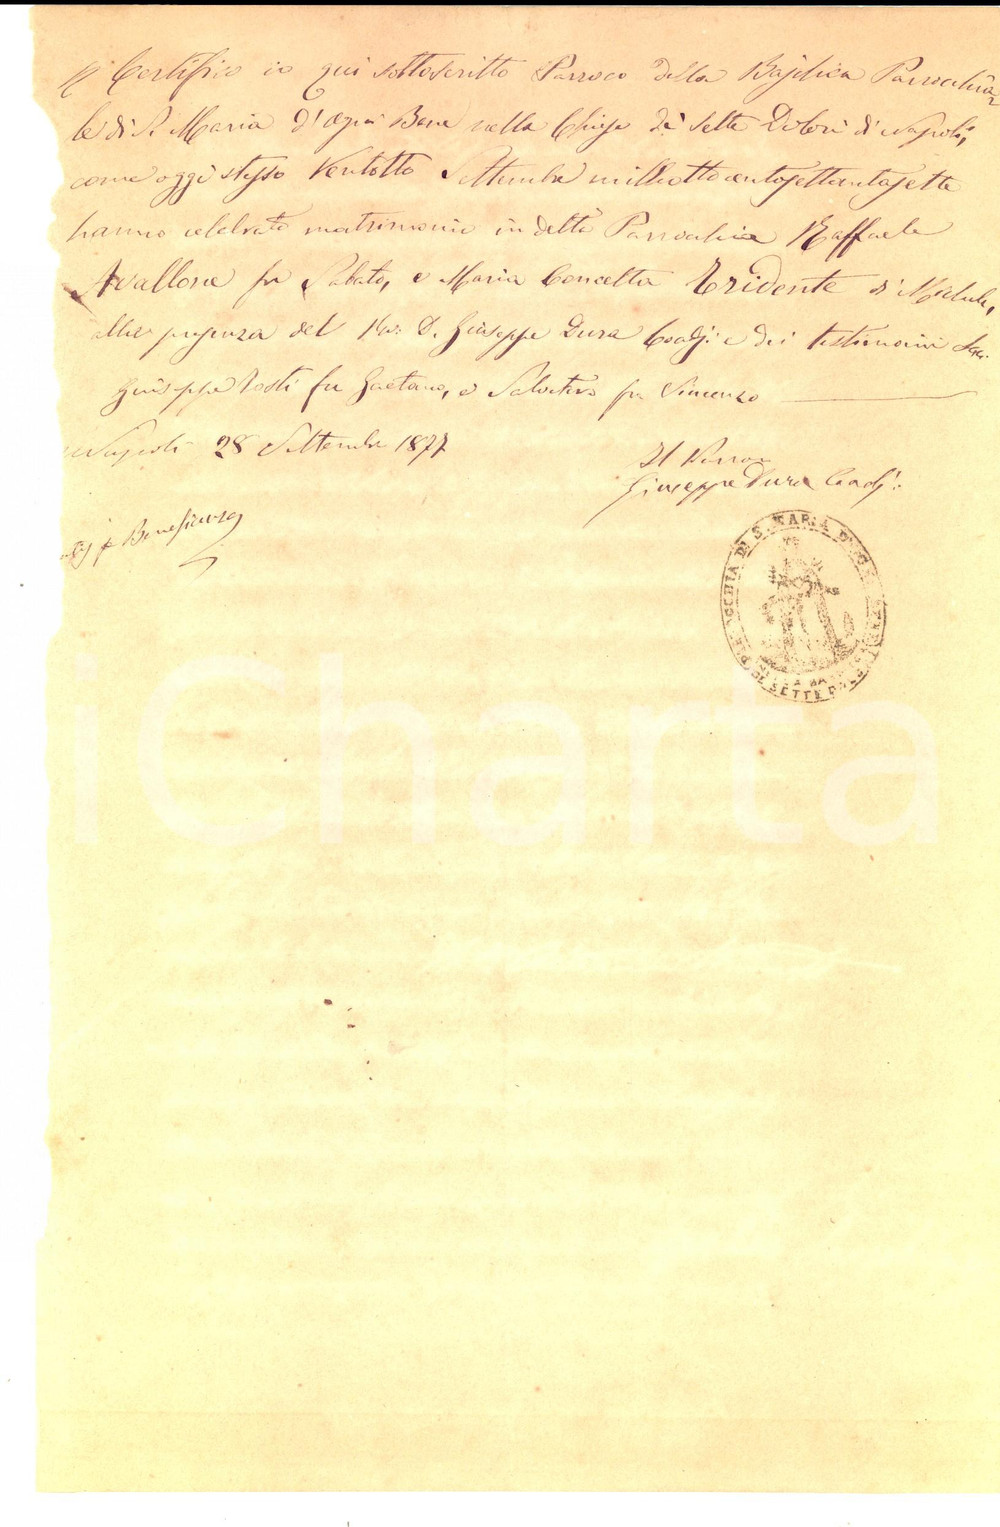 Certifico io qui sottoscritto Parroco della Basilica Parrocchia
le di S. Maria d'ogni Bene nella Chiesa dei Sette Dolori di Napoli,
come oggi stesso Ventotto Settembre milleottocentosettantasette
hanno celebrato matrimonio in detta Parrocchia Raffaele
Avallone fu Sabato, e Maria Concetta Tridente di Michele,
alla presenza del D. Giuseppe Dura Coadj: e dei testimoni
Giuseppe Tosti fu Gaetano, e Salvatore fu Vincenzo
Napoli 28 Settembre 1877
Il Parroco
Giuseppe Dura Coadj:
Beneficenza
PARROCCHIA DI S. MARIA D'OGNI
SETTE
iCharta